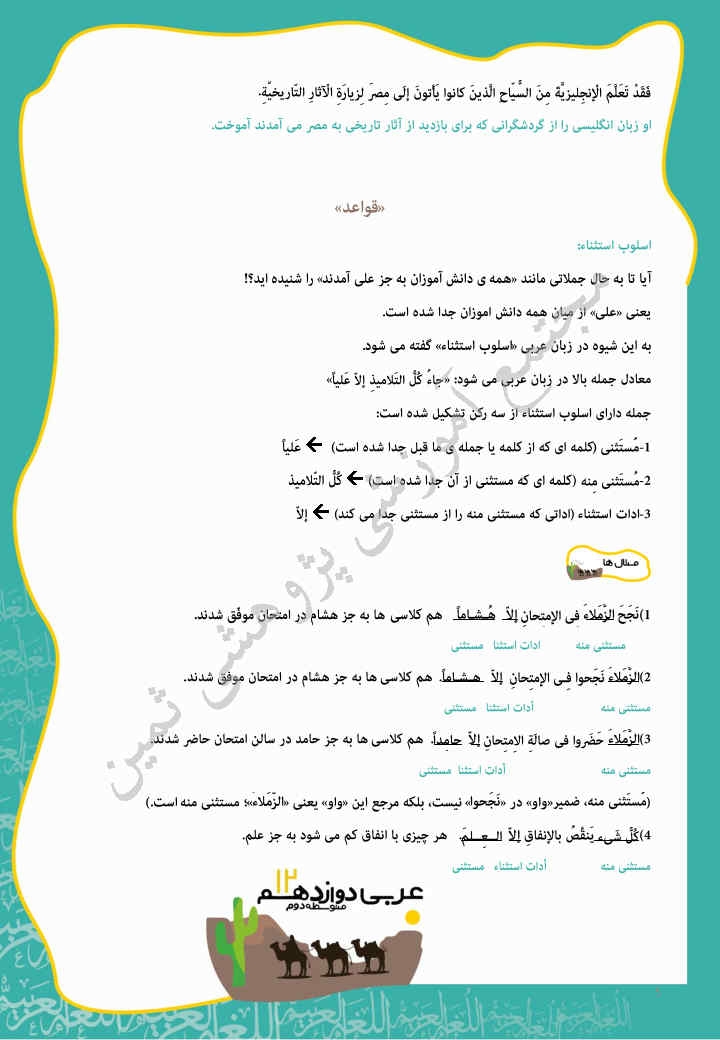 فَقَدْ تَعَلَّمَ الْإنجِلیزیَّةَ مِنَ السُّیّاحِ الَّذینَ کانوا یَأتونَ إلَی مِصرَ لِزیارَةِ الْآثارِ التّاریخیَّةِ.
او زبان انگلیسی را از گردشگرانی که برای بازدید از آثار تاریخی به مصر می آمدند آموخت.
«قواعد»
اسلوب استثناء:
آیا تا به حال جملاتی مانند «همه ی دانش آموزان به جز علی آمدند» را شنیده اید؟!
یعنی «علی» از میان همه دانش اموزان جدا شده است.
به این شیوه در زبان عربی «اسلوب استثناء» گفته می شود.
معادل جمله بالا در زبان عربی می شود: «جاءُ کُلُّ التَلامیذِ إلاّ عَلیاً»
جمله دارای اسلوب استثناء از سه رکن تشکیل شده است:
1-مُستَثنی (کلمه ای که از کلمه یا جمله ی ما قبل جدا شده است) ← عَلیاً
2-مُستَثنی مِنه (کلمه ای که مستثنی از آن جدا شده است) ← کُلُّ التّلامیذ
3-ادات استثناء (اداتی که مستثنی منه را از مستثنی جدا می کند) ← إلاّ
مثال ها
1)نَجَحَ الزُّمَلاءَ فِی الإمتِحانِ إلاّ هُـشـاماً هم کلاسی ها به جز هشام در امتحان موفّق شدند.
مستثنی منه ادات استثنا مستثنی
2)الزُّمَلاءَ نَجَحوا فِـی الإمتِحانِ إلاّ هـشـاماً. هم کلاسی ها به جز هشام در امتحان موفق شدند.
مستثنی منه أدات استثنا مستثنی
3)الزُّمَلاءَ حَضَروا فی صالَةِ الإمتِحانِ إلاّ حامِداً. هم کلاسی ها به جز حامد در سالن امتحان حاضر شدند.
مستثنی منه أدات استثنا مستثنی
(مُستَثنی منه، ضمیر«واو» در «نَجَحوا» نیست، بلکه مرجع این «واو» یعنی «الزُّمَلاءَ»؛ مستثنی منه است.)
4)کُلُّ شَیء یَنقُصُ بالإنفاقِ إلاّ الـعِـلـمَ. هر چیزی با انفاق کم می شود به جز علم.
مستثنی منه أدات استثناء مستثنی
عربی دوازدهـم ۱۲
متوسطه دوم
مجتمع آموزشی پژوهشی ثمین